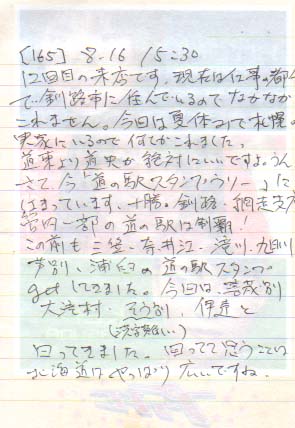 [165] 8.16 15:30
12回目の来店です。現在は仕事の都合
で釧路市に住んでいるのでなかなか
これません。今回は夏休みで札幌の
実家にいるので何とかこれました。
道東より道央が絶対にいいですよ。うん
さて、今「道の駅スタンプラリー」に
はまっています。十勝、釧路・網走支庁
管内一部の道の駅は制覇!
この前も三笠・奈井江・滝川、旭川
芦別、浦臼の道の駅スタンプ
getしてきました。今回は、
大滝村・そうべつ、伊達と
(漢字難しい)
回ってきました。回ってて思うことは
北海道はやっぱり広いですね。